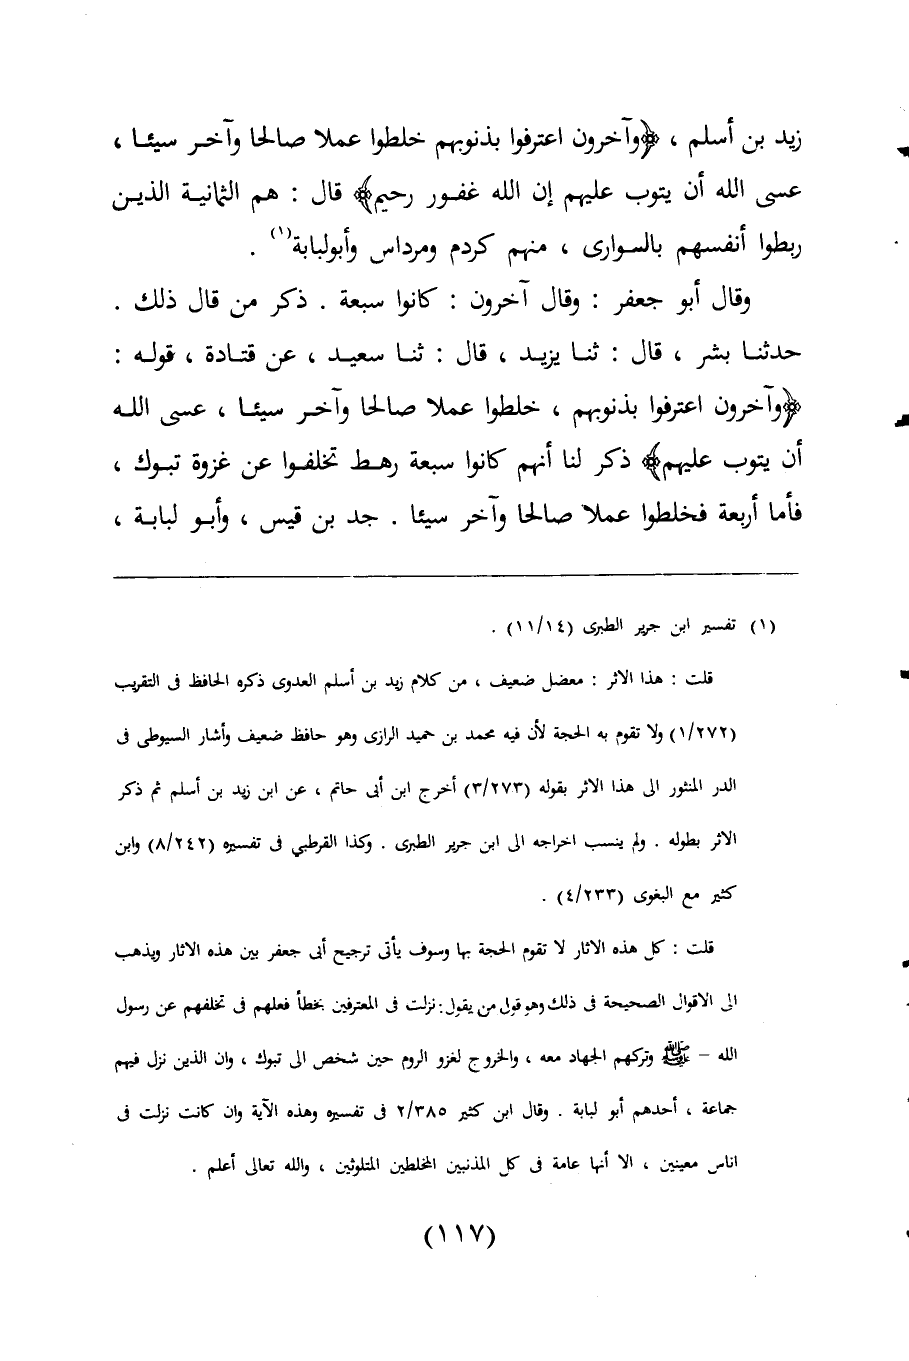 زيد بن أسلم ، ﴿وآخرون اعترفوا بذنوبهم خلطوا عملا صالحا وآخر سيئا ،
عسى الله أن يتوب عليهم إن الله غفور رحيم﴾ قال : هم الثمانية الذين
ربطوا أنفسهم بالسوارى ، منهم كردم ومرداس وأبولبابة(١) .
وقال أبو جعفر : وقال آخرون : كانوا سبعة . ذكر من قال ذلك .
حدثنا بشر ، قال : ثنا يزيد ، قال : ثنا سعيد ، عن قتادة ، قوله :
﴿وآخرون اعترفوا بذنوبهم ، خلطوا عملا صالحا وآخر سيئا ، عسى الله
أن يتوب عليهم﴾ ذكر لنا أنهم كانوا سبعة رهط تخلفوا عن غزوة تبوك ،
فأما أربعة فخلطوا عملا صالحا وآخر سيئا . جد بن قيس ، وأبو لبابة ،
(١) تفسير ابن جرير الطبرى (١١/١٤) .
قلت : هذا الاثر : معضل ضعيف ، من كلام زيد بن أسلم العدوى ذكره الحافظ فى التقريب
(١/٢٧٢) ولا تقوم به الحجة لأن فيه محمد بن حميد الرازى وهو حافظ ضعيف وأشار السيوطى فى
الدر المنثور الى هذا الاثر بقوله (٣/٢٧٣) أخرج ابن أبى حاتم ، عن ابن زيد بن أسلم ثم ذكر
الاثر بطوله . ولم ينسب اخراجه الى ابن جرير الطبرى . وكذا القرطبي فى تفسيره (٨/٢٤٢) وابن
كثير مع البغوى (٤/٢٣٣) .
قلت : كل هذه الاثار لا تقوم الحجة بها وسوف يأتى ترجيح أبى جعفر بين هذه الاثار ويذهب
الى الاقوال الصحيحة فى ذلك وهو قول من يقول : نزلت فى المعترفين بخطأ فعلهم فى تخلفهم عن رسول
الله – ﷺ وتركهم الجهاد معه ، والخروج لغزو الروم حين شخص الى تبوك ، وان الذين نزل فيهم
جماعة ، أحدهم أبو لبابة . وقال ابن كثير ٢/٣٨٥ فى تفسيره وهذه الآية وان كانت نزلت فى
اناس معينين ، الا أنها عامة فى كل المذنبين المخلطين المتلوثين ، والله تعالى أعلم .
(١١٧)